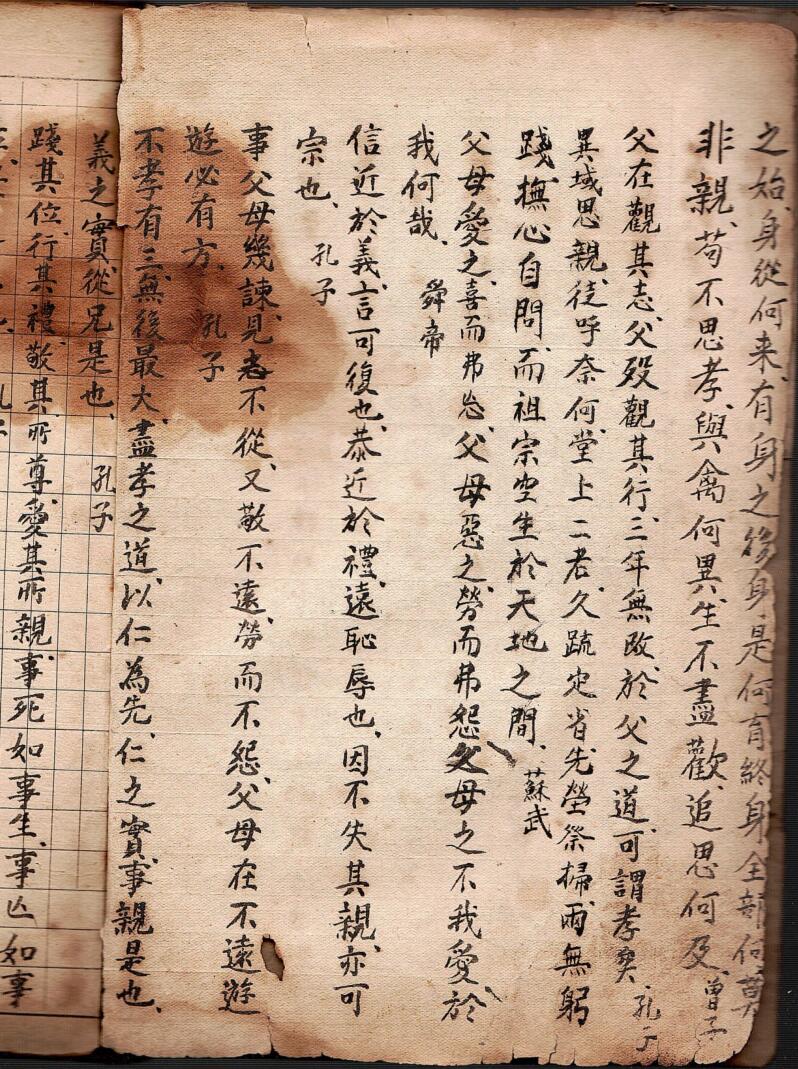 之始、身從何来、有身之後、身是何育、終身全部何莫
非親、苟不思孝、與禽何異、生不盡歡、追思何及、曾子
父在觀其志、父歿觀其行、三年無改、於父之道、可謂孝矣、孔子
異域思親、徒呼奈何、堂上二老、久疏定省、先塋祭掃、兩無躬
踐、撫心自問、而祖宗空生於天地之間、蘇武
父母愛之、喜而弗忘、父母惡之、勞而弗怨、父母之不我愛、於
我何哉、舜帝
信近於義、言可復也、恭近於禮、遠恥辱也、因不失其親、亦可
宗也、孔子
事父母幾諫、見志不從、又敬不違、勞而不怨、父母在不遠遊
遊必有方、孔子
不孝有三、無後最大、盡孝之道、以仁為先、仁之實、事親是也、
義之實、從兄是也、孔子
踐其位、行其禮、敬其所尊、愛其所親、事死如事生、事亡如事